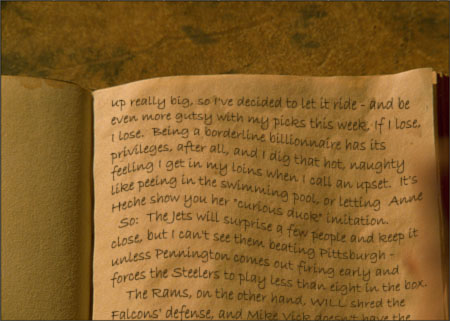 up really big, so I've decided to let it ride - and be
even more gutsy with my picks this week. If I lose,
I lose. Being a borderline billionnaire has its
privileges, after all, and I dig that hot, naughty
feeling I get in my loins when I call an upset. It's
like peeing in the swimming pool, or letting Anne
Heche show you her "curious duck" imitation.
So: The Jets will surprise a few people and keep it
close, but I can't see them beating Pittsburgh -
unless Pennington comes out firing early and
forces the Steelers to play less than eight in the box.
The Rams, on the other hand, WILL shred the
Falcons' defense, and Mike Vick doesn't have the